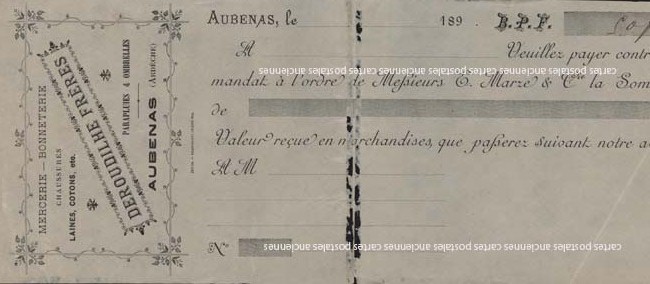 MERCERIE - BONNETERIE
CHAUSSURES
LAINES, COTONS, etc.
DEROUDILHE FRÈRES
PARAPLUIES & OMBRELLES
AUBENAS (ARDÈCHE)
AUBENAS, le 189 . B.P.F.
A Veuillez payer contr
mandat à l'ordre de Messieurs E. Marze & Cie la Som
de
Valeur reçue en marchandises, que passerez suivant notre a
A M
No
cartes postales anciennes cartes postales anciennes cartes postales anciennes
cartes postales anciennes cartes postales anciennes cartes postales anciennes